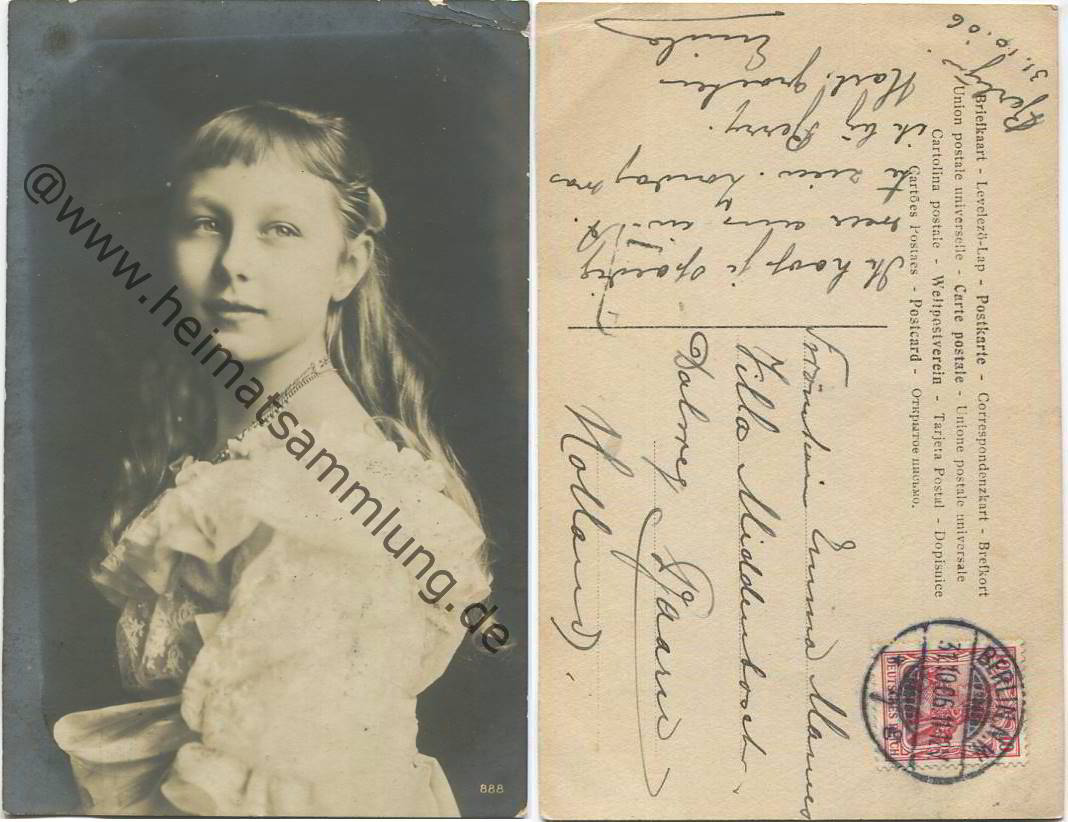 @www.heimatsammlung.de
888
31.10.06
Briefkaart - Levelező-Lap - Postkarte - Correspondenzkart - Brefkort
Union postale universelle - Carte postale - Unione postale universale
Cartolina postale - Weltpostverein - Tarjeta Postal - Dopisnice
Cartões Postaes - Postcard - Открытое письмо.
Ik hoop je spoedig
weer eens
te zien.
ik bij Berry.
Hart. groeten
Emma
Villa Middenbosch
Dalweg
Holland.
BERLIN N.
31.10.06
DEUTSCHES REICH